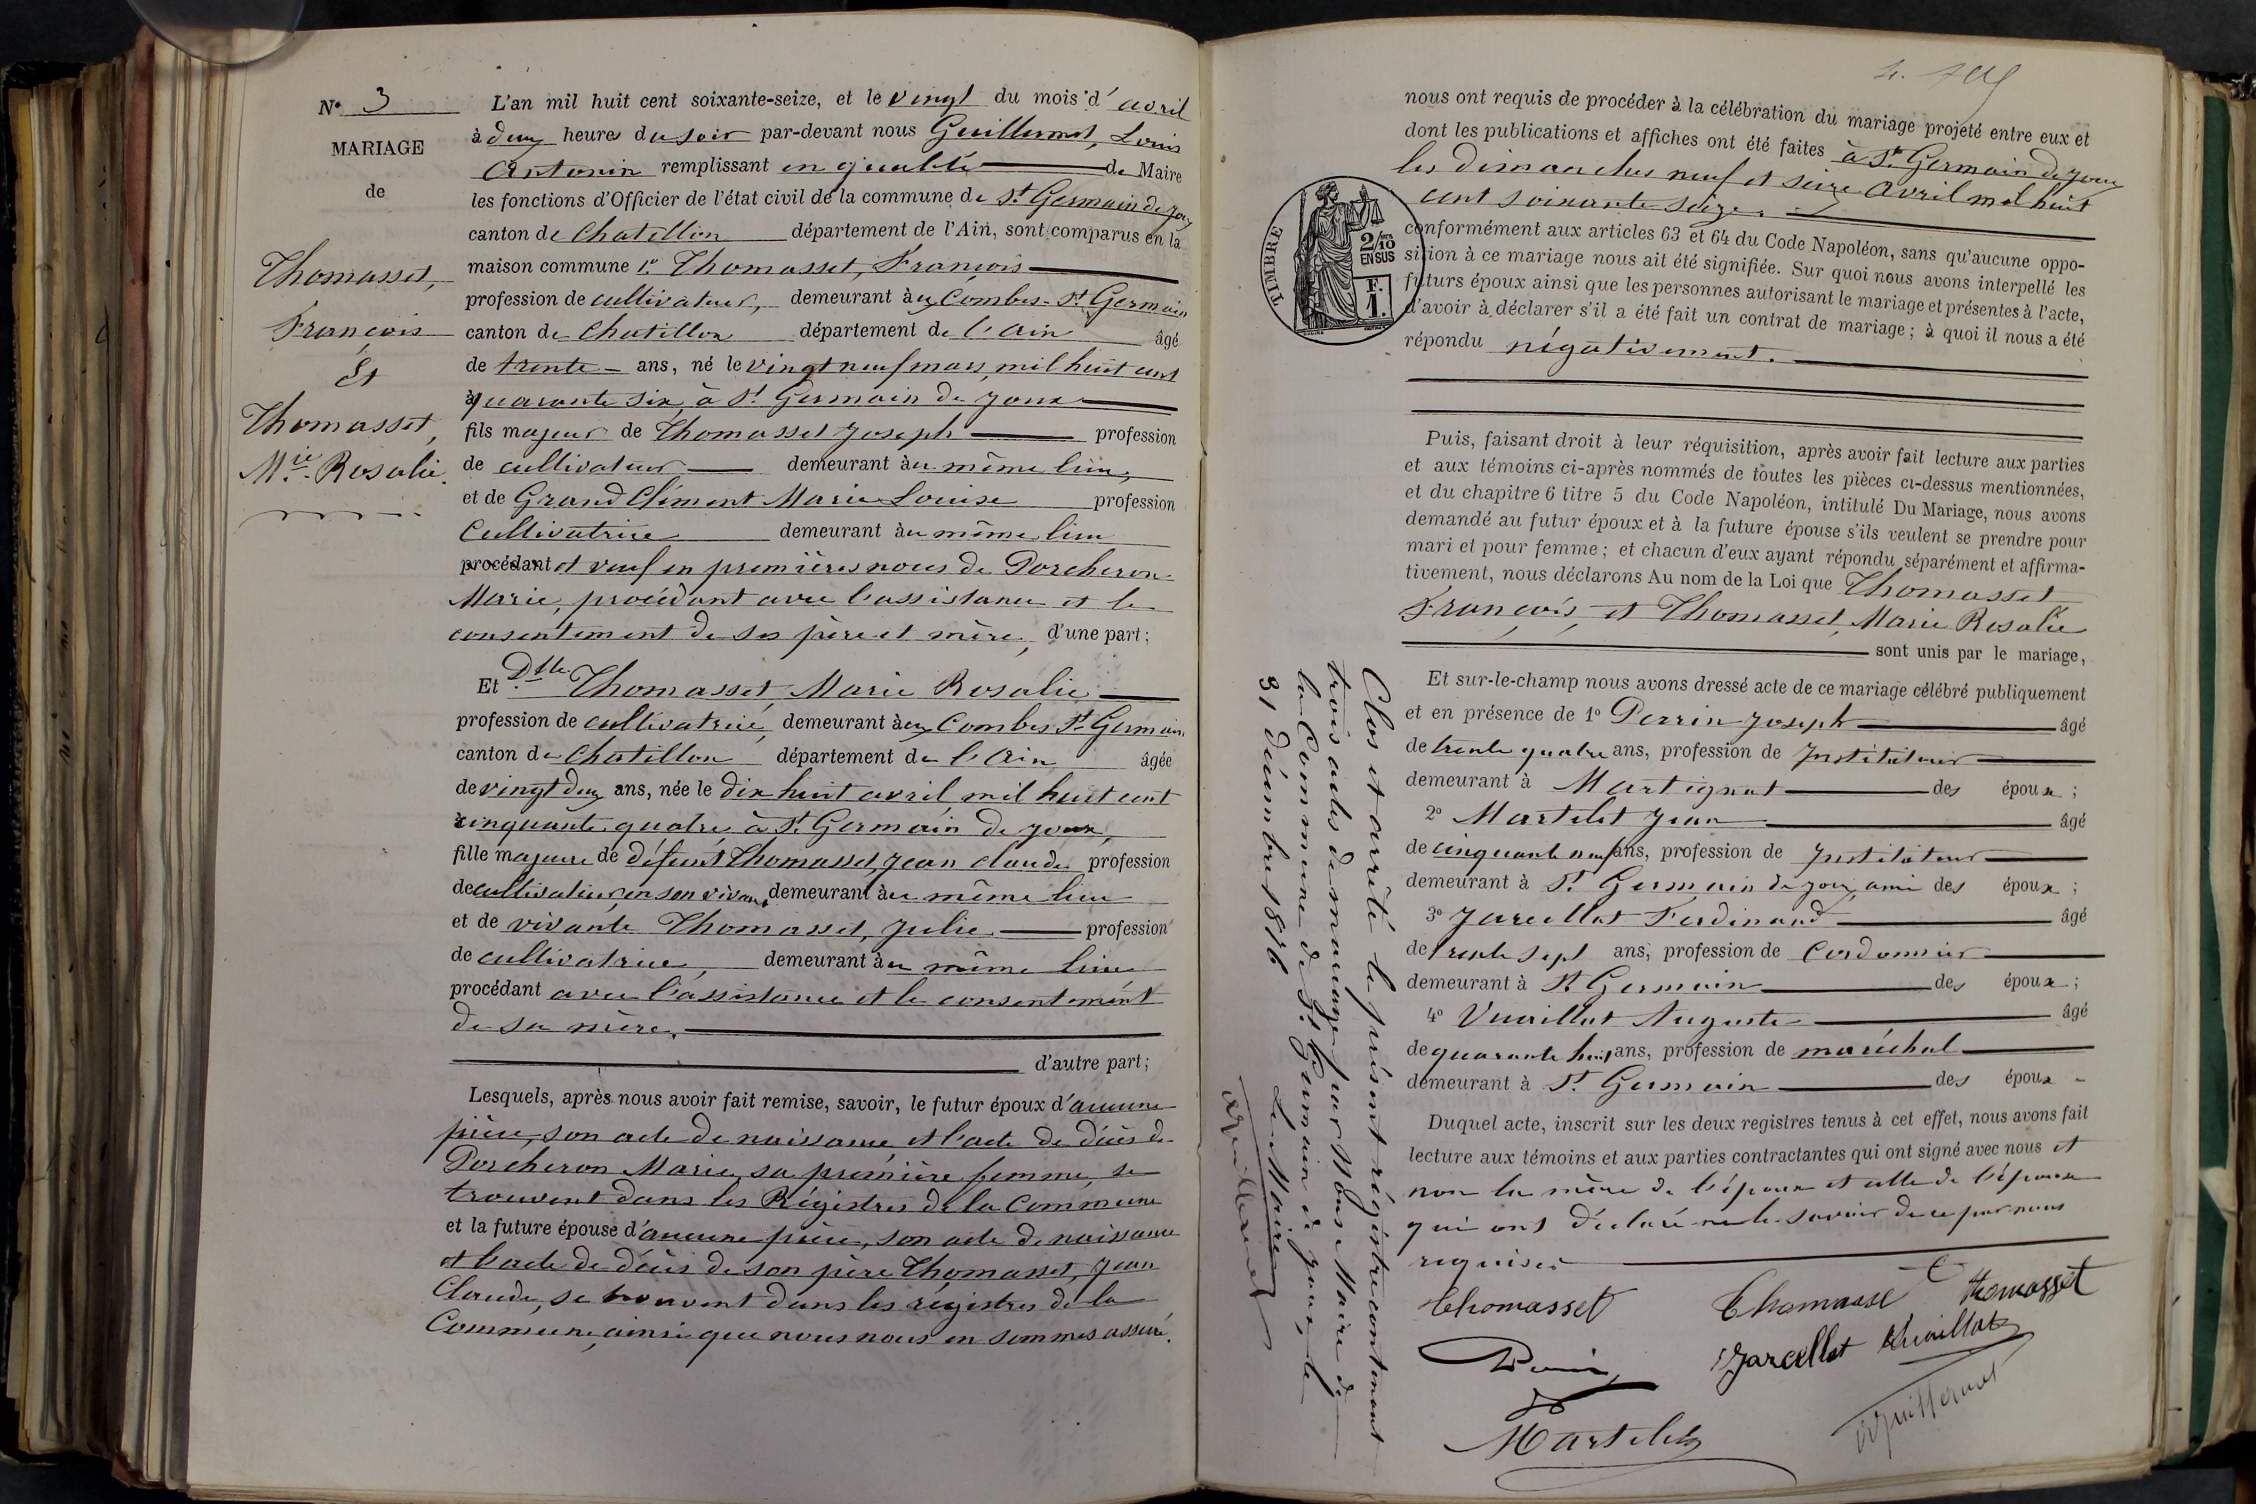 N° 3
MARIAGE
de
Thomasset,
François
Et
Thomasset,
Mie Rosalie.
L'an mil huit cent soixante-seize, et le vingt du mois d'avril
à deux heures du soir par-devant nous Guillermet, Louis
Antonin remplissant en qualité de Maire
les fonctions d'Officier de l'état civil de la commune de St Germain de Joux
canton de Chatillon département de l'Ain, sont comparus en la
maison commune 1° Thomasset, François
profession de cultivateur, demeurant aux Combes St Germain
canton de Chatillon département de l'Ain âgé
de trente ans, né le vingt neuf mars, mil huit cent
quarante six, à St Germain de Joux
fils majeur de Thomasset Joseph profession
de cultivateur demeurant au même lieu,
et de Grand Clément Marie Louise profession
Cultivatrice demeurant au même lieu
procédant et veuf en premières noces de Porcheron
Marie, procédant avec l'assistance et le
consentement de ses père et mère, d'une part;
Et Dlle Thomasset, Marie Rosalie
profession de cultivatrice, demeurant aux Combes St Germain,
canton de Chatillon département de l'Ain âgée
de vingt deux ans, née le dix huit avril mil huit cent
cinquante quatre à St Germain de Joux,
fille majeure de défunt Thomasset, Jean Claude profession
de cultivateur, en son vivant demeurant au même lieu
et de vivante Thomasset, Julie profession
de cultivatrice, demeurant au même lieu
procédant avec l'assistance et le consentement
de sa mère,
d'autre part;
Lesquels, après nous avoir fait remise, savoir, le futur époux d'aucune
pièce, son acte de naissance et l'acte de décès de
Porcheron Marie, sa première femme, se
trouvent dans les Régistres de la Commune
et la future épouse d'aucune pièce, son acte de naissance
et l'acte de décès de son père Thomasset, Jean
Claude, se trouvent dans les régistres de la
Commune, ainsi que nous nous en sommes assuré.
nous ont requis de procéder à la célébration du mariage projeté entre eux et
dont les publications et affiches ont été faites à St Germain de Joux
les dimanches neuf et seize avril mil huit
cent soixante seize.
conformément aux articles 63 et 64 du Code Napoléon, sans qu'aucune oppo-
sition à ce mariage nous ait été signifiée. Sur quoi nous avons interpellé les
futurs époux ainsi que les personnes autorisant le mariage et présentes à l'acte,
d'avoir à déclarer s'il a été fait un contrat de mariage; à quoi il nous a été
répondu négativement.
TIMBRE
2/10
EN SUS
F.
1.
Puis, faisant droit à leur réquisition, après avoir fait lecture aux parties
et aux témoins ci-après nommés de toutes les pièces ci-dessus mentionnées,
et du chapitre 6 titre 5 du Code Napoléon, intitulé Du Mariage, nous avons
demandé au futur époux et à la future épouse s'ils veulent se prendre pour
mari et pour femme; et chacun d'eux ayant répondu séparément et affirma-
tivement, nous déclarons Au nom de la Loi que Thomasset
François, et Thomasset, Marie Rosalie
sont unis par le mariage,
Et sur-le-champ nous avons dressé acte de ce mariage célébré publiquement
et en présence de 1° Perrin Joseph âgé
de trente quatre ans, profession de Instituteur
demeurant à Martignat des époux;
2° Martelet Jean âgé
de cinquante neuf ans, profession de Instituteur
demeurant à St Germain de Joux, ami des époux;
3° Jarcellat Ferdinand âgé
de trente sept ans, profession de Cordonnier
demeurant à St Germain des époux;
4° Vuaillat Auguste âgé
de quarante huit ans, profession de maréchal
demeurant à St Germain des époux
Duquel acte, inscrit sur les deux registres tenus à cet effet, nous avons fait
lecture aux témoins et aux parties contractantes qui ont signé avec nous et
non la mère de l'époux et celle de l'épouse
qui ont déclaré ne le savoir de ce par nous
requises
Thomasset Thomasset Thomasset
Perrin Jarcellat Vuaillat
Martelet Guillermet
Clos et arrêté le présent régistre contenant
trois actes de mariage par Nous Maire de
la Commune de St Germain de Joux, le
31 décembre 1876
Le Maire
Guillermet